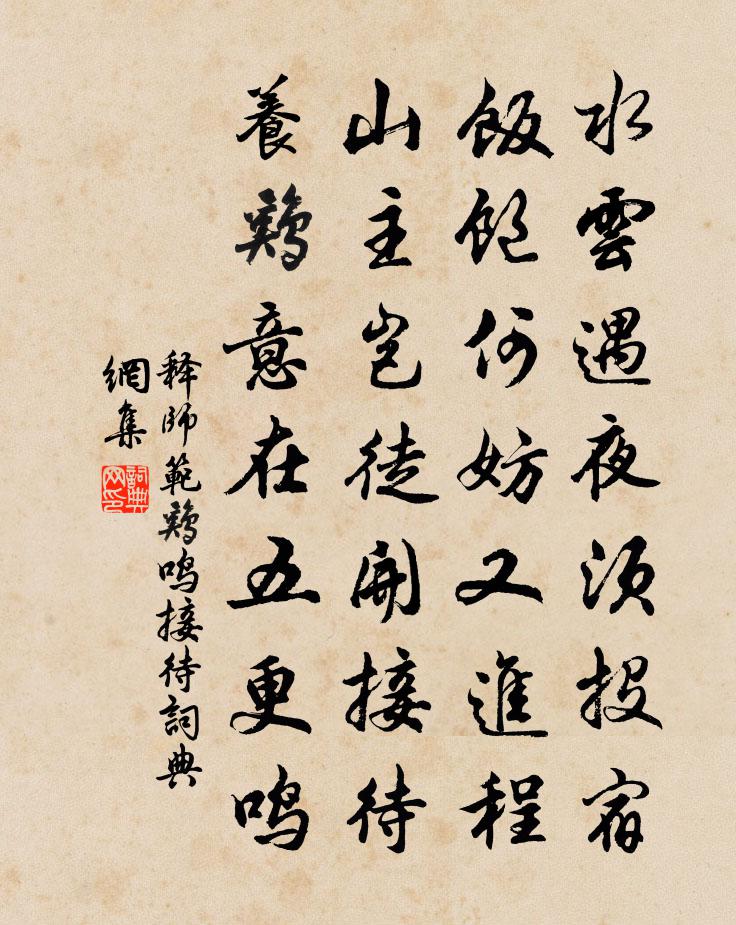 水雲遇夜須投宿
飯飽何妨又進程
山主豈徒開接待
養鷄意在五更鳴
释師範鷄鳴接待詞典
網集
詞典網印